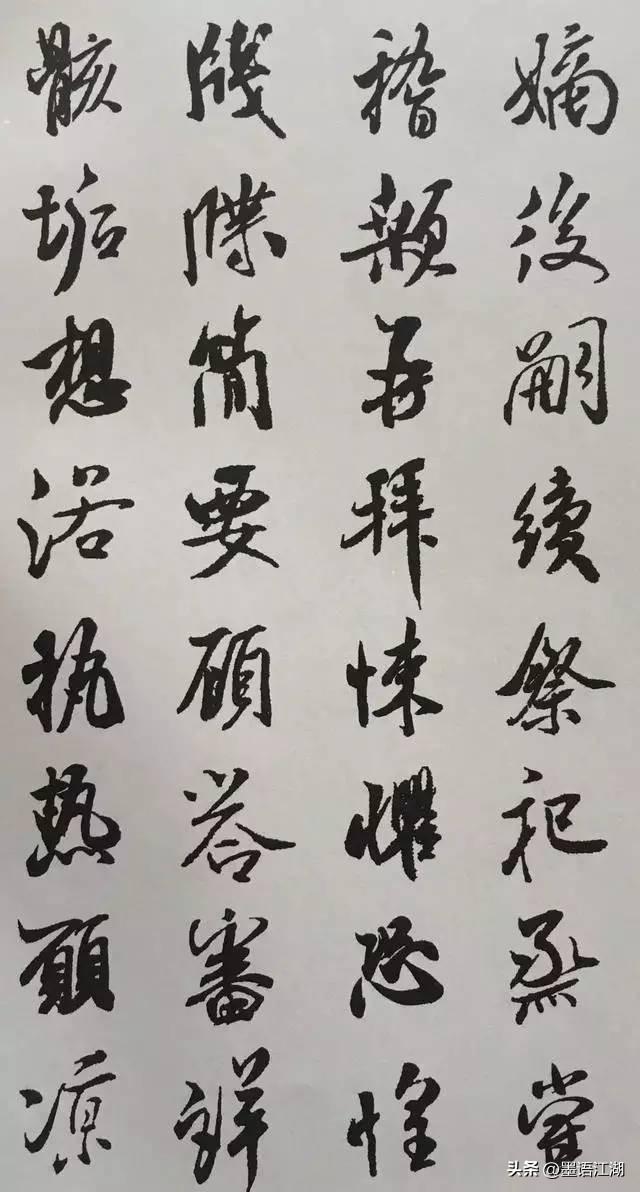 嫡後嗣續祭祀烝嘗
稽顙再拜悚懼恐惶
牋牒簡要顧答審詳
骸垢想浴執熱願凉
头条 @墨语江湖